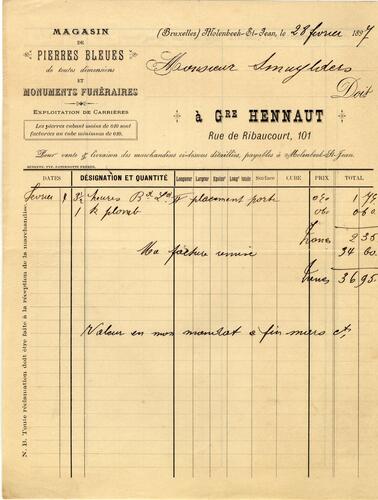 MAGASIN
DE
PIERRES BLEUES
de toutes dimensions
ET
MONUMENTS FUNÉRAIRES
EXPLOITATION DE CARRIÈRES
Les pierres cubant moins de 020 sont
facturées au cube minimum de 020.
(Bruxelles) Molenbeek-St-Jean, le 28 février 1897
Monsieur Smuylders
Doit
à GRE HENNAUT
Rue de Ribaucourt, 101
Pour vente & livraison des marchandises ci-dessous détaillées, payables à Molenbeek-St-Jean.
DATES DÉSIGNATION ET QUANTITÉ Longueur Largeur Epaisr Longr totale Surface CUBE PRIX TOTAL
Février 3½ heures placement porte
1 k plomb 060 060
Francs 2 35
Ma facture remise 34 60
Francs 36 95
Valeur en mon mandat à fin mars ct,
N. B. Toute réclamation doit être faite à la réception de la marchandise